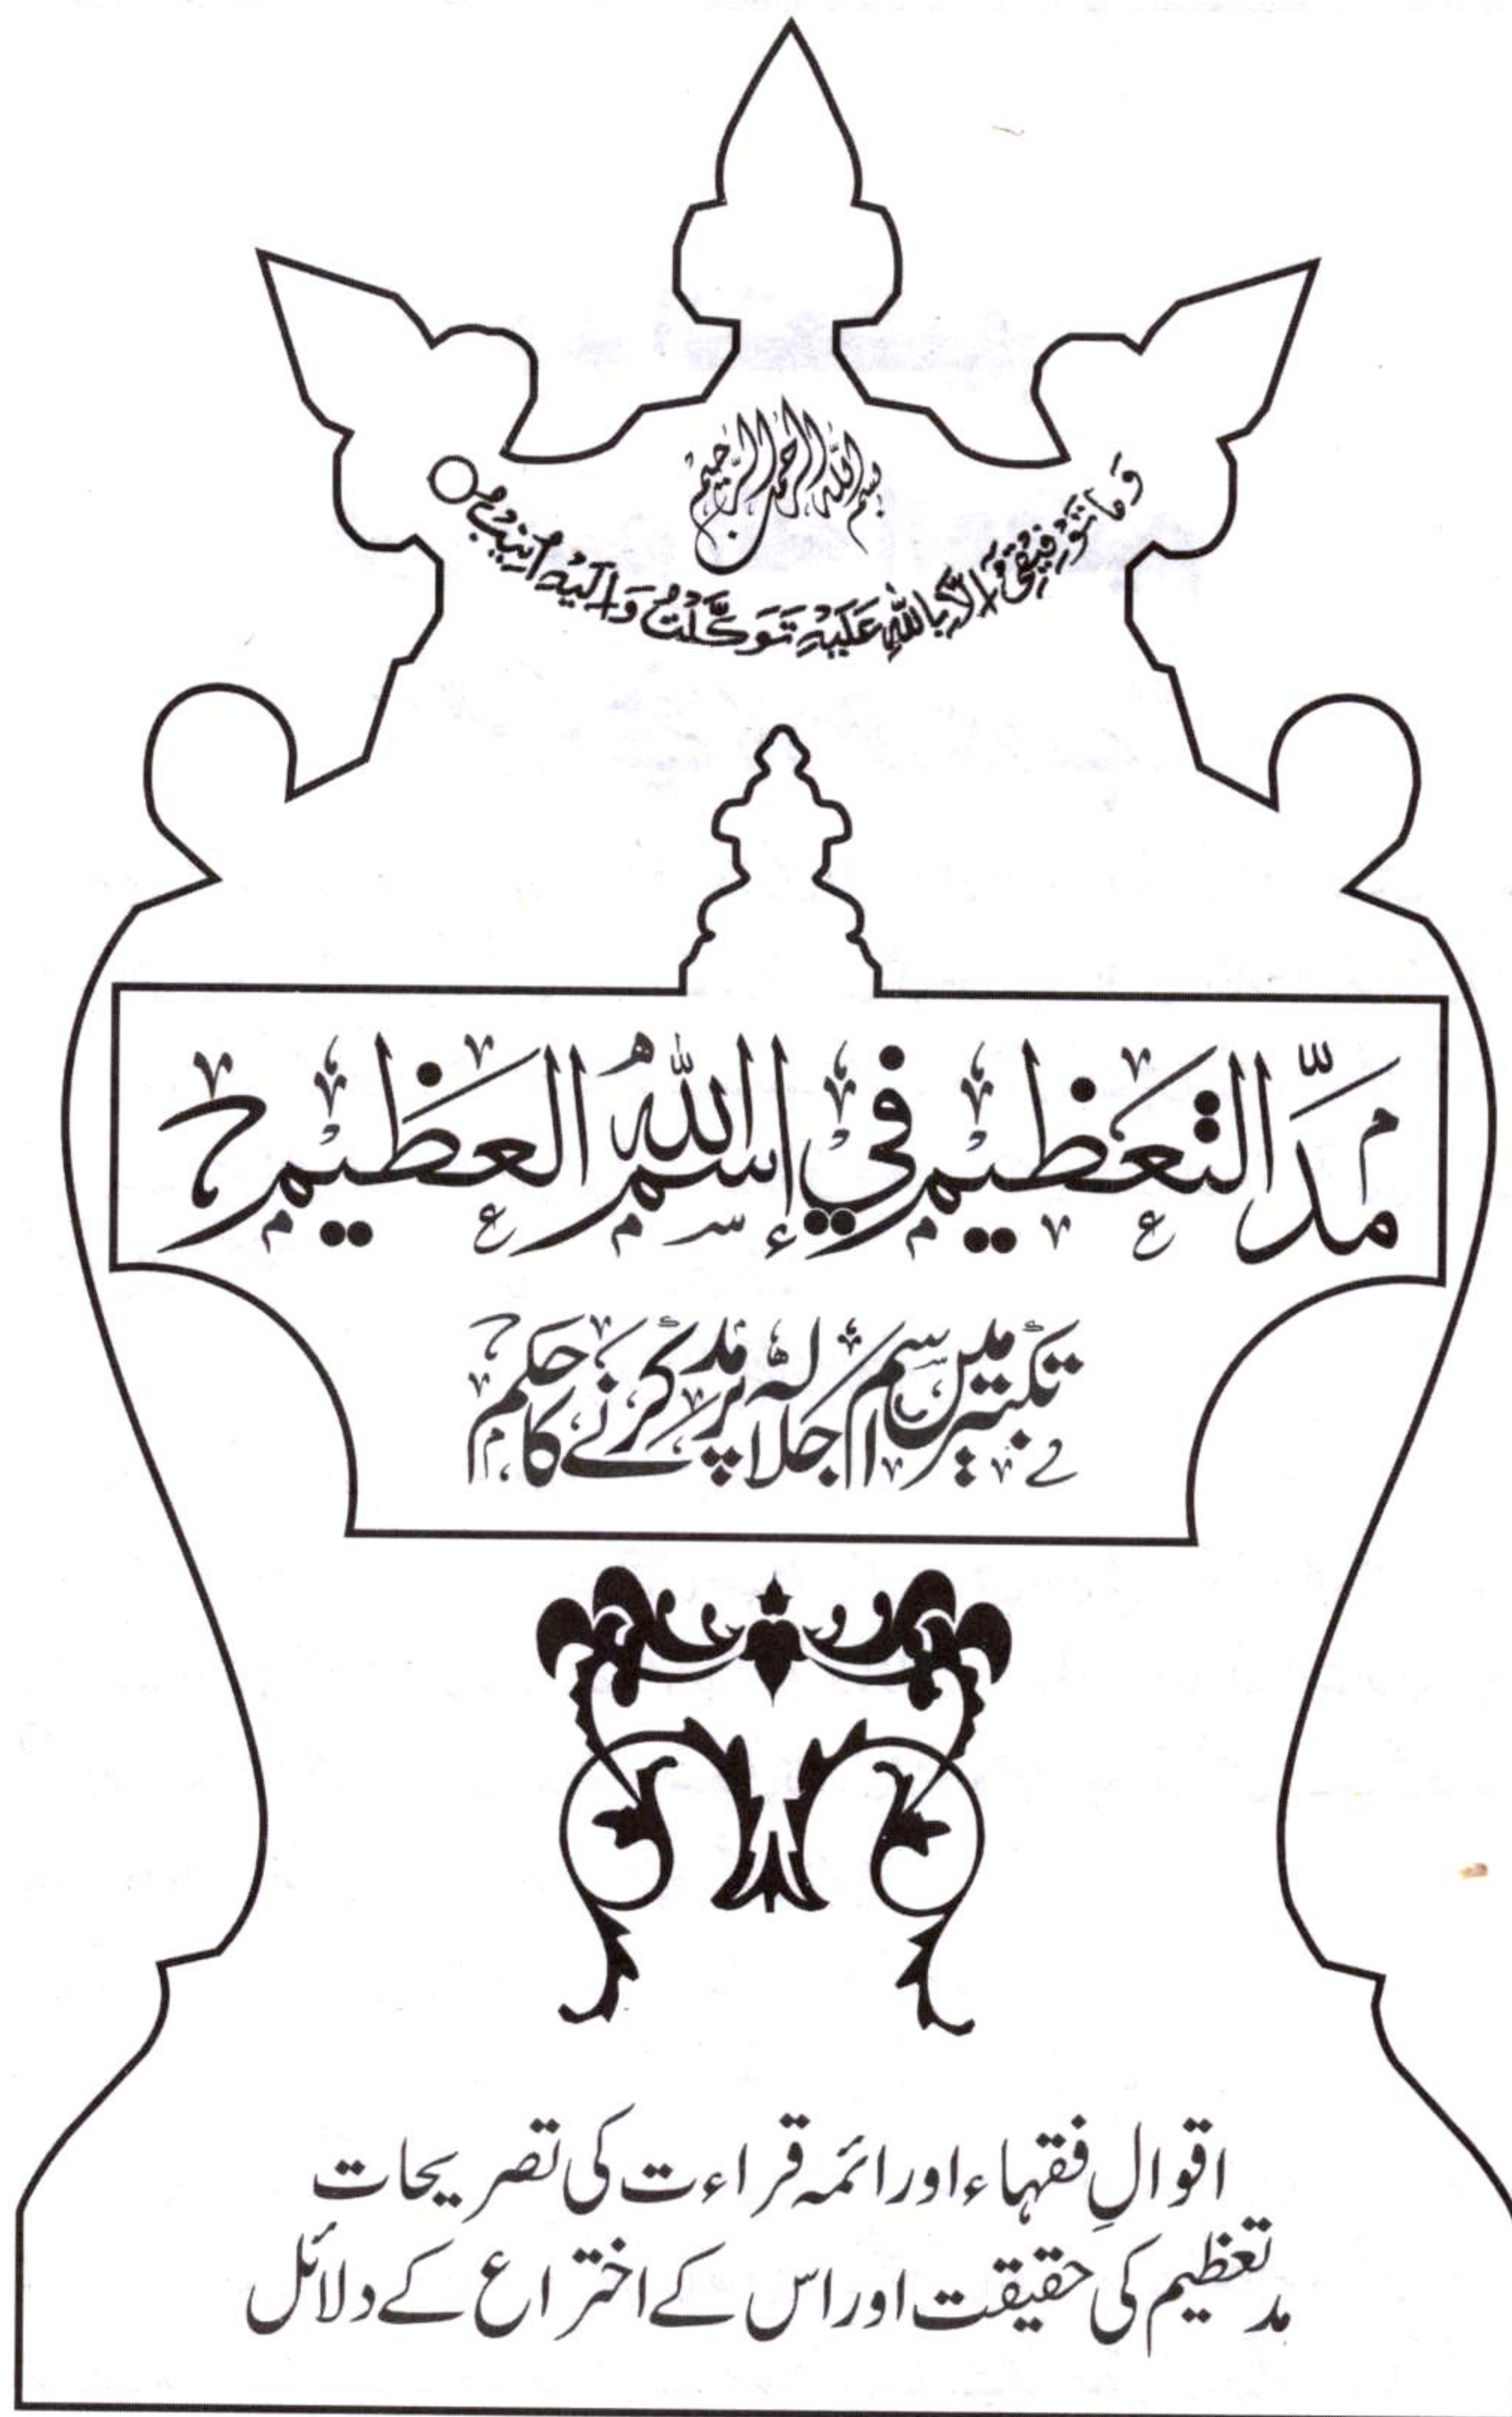 بسم الله الرحمن الرحيم
وَمَا تَوْفِيْقِيْ اِلَّا بِاللّٰهِ عَلَيْهِ تَوَكَّلْتُ وَاِلَيْهِ اُنِيْبُ
مدّ التعظيم في إسم اللهُ العظيم
تکبیر میں اسم جلالہ پر مد کرنے کا حکم
اقوالِ فقہاء اور ائمہ قراءت کی تصریحات
مد تعظیم کی حقیقت اور اس کے اختراع کے دلائل